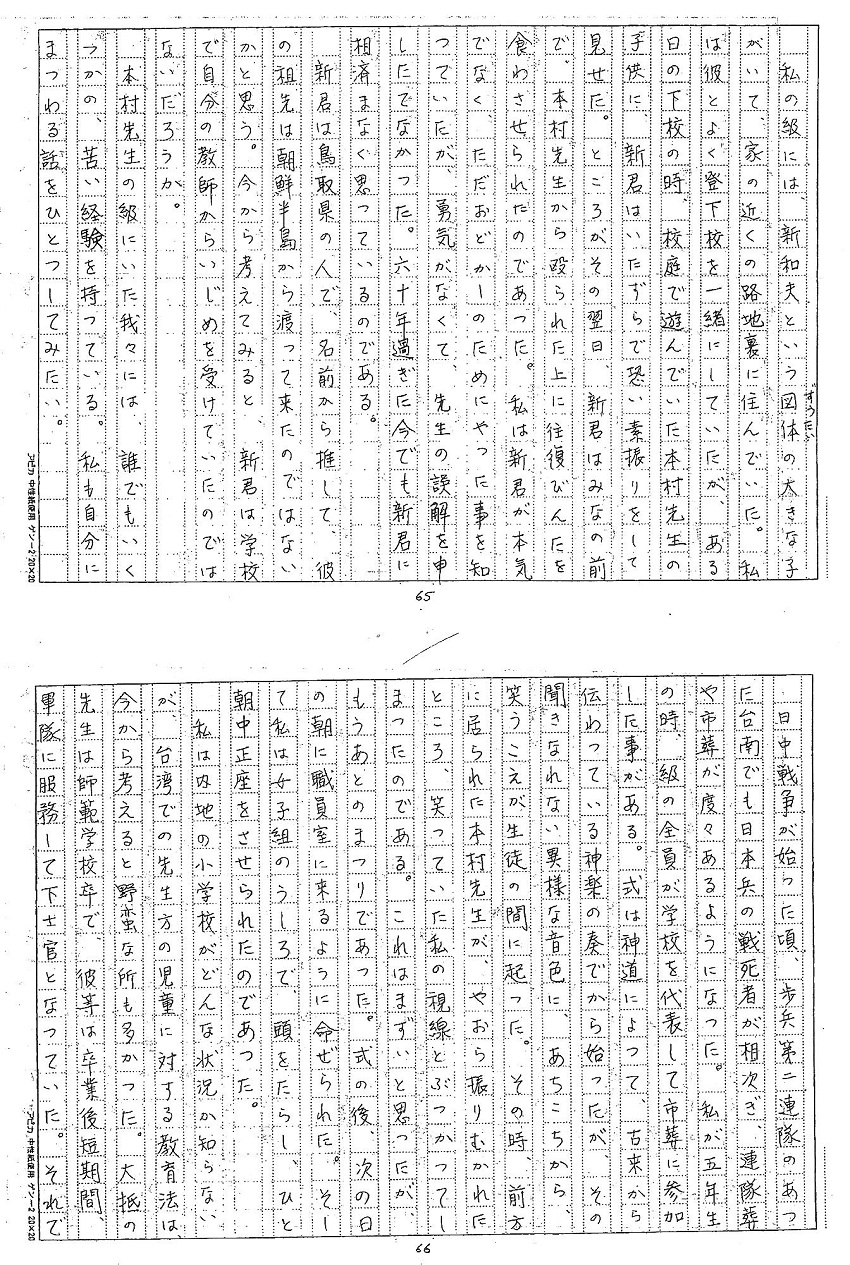 私の級には、新和夫という図体の大きな子
ずうたい
がいて、家の近くの路地裏に住んでいた。私
は彼とよく登下校を一緒にしていたが、ある
日の下校の時、校庭で遊んでいた本村先生の
子供に、新君はいたずらで恐い素振りをして
見せた。ところがその翌日、新君はみなの前
で、本村先生から殴られた上に往復びんたを
食わさせられたのであった。私は新君が本気
でなく、ただおどかしのためにやった事を知
っていたが、勇気がなくて、先生の誤解を申
したでなかった。六十年過ぎた今でも新君に
相済まなく思っているのである。
新君は鳥取県の人で、名前から推して、彼
の祖先は朝鮮半島から渡って来たのではない
かと思う。今から考えてみると、新君は学校
で自分の教師からいじめを受けていたのでは
ないだろうか。
本村先生の級にいた我々には、誰でもいく
つかの、苦い経験を持っている。私も自分に
まつわる話をひとつしてみたい。
65
日中戦争が始った頃、歩兵第二連隊のあっ
た台南でも日本兵の戦死者が相次ぎ、連隊葬
や市葬が度々あるようになった。私が五年生
の時、級の全員が学校を代表して市葬に参加
した事がある。式は神道によって、古来から
伝わっている神楽の奏でから始ったが、その
聞きなれない異様な音色に、あちこちから、
笑うこえが生徒の間に起った。その時、前方
に居られた本村先生が、やおら振りむかれた
ところ、笑っていた私の視線とぶつかってし
まったのである。これはまずいと思ったが、
もうあとのまつりであった。式の後、次の日
の朝に職員室に来るように命ぜられた。そし
て私は女子組のうしろで、頭をたらし、ひと
朝中正座をさせられたのであった。
私は内地の小学校がどんな状況か知らない
が、台湾での先生方の児童に対する教育法は、
今から考えると野蛮な所も多かった。大抵の
先生は師範学校卒で、彼等は卒業後短期間、
軍隊に服務して下士官となっていた。それで
66